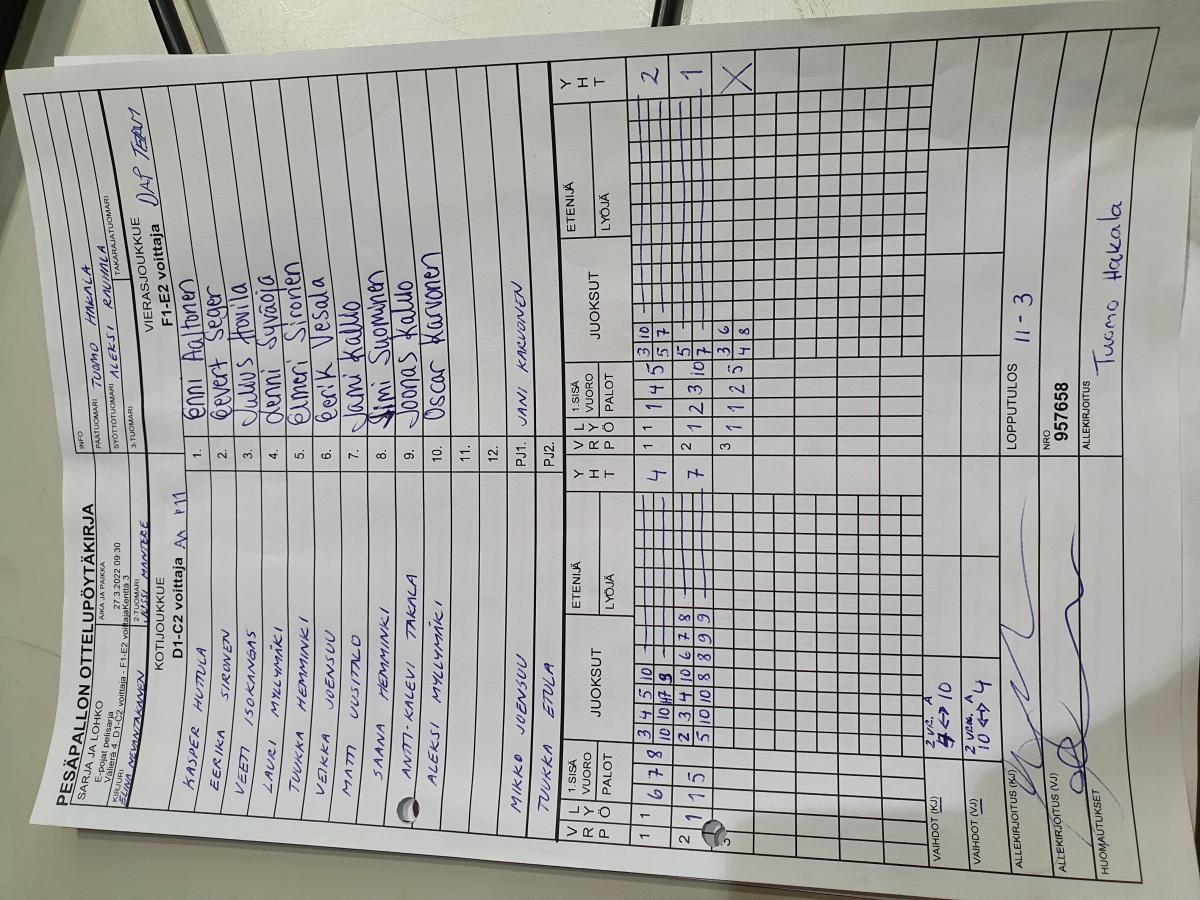 PESÄPALLON OTTELUPÖYTÄKIRJA
SARJA JA LOHKO
E-pojat pelisarja
Välierä 4. D1-C2 voittaja - F1-E2 voittaja
AIKA JA PAIKKA
27.3.2022 09:30
Kenttä 3
INFO
PÄÄTUOMARI TUOMO HAKALA
SYÖTTÖTUOMARI ALEKSI RAUHALA
KIRJURI
2-TUOMARI
JUSSI MANTERE
3-TUOMARI
TAKARAJATUOMARI
KOTIJOUKKUE
D1-C2 voittaja
VIERASJOUKKUE
F1-E2 voittaja DAP TEAM
KASPER HUTULA 1. Enni Aaltonen
EERIKA SIRONEN 2. Eevert Seger
VEETI ISOKANGAS 3. Julius Hovila
LAURI MYLLYMÄKI 4. Lenni Syväoja
TUUKKA HEMMINKI 5. Elmeri Sironen
VEIKKA JOENSUU 6. Eerik Vesala
MATTI UUSITALO 7. Jani Kallio
SAANA HEMMINKI 8. Simi Suominen
ANTTI-KALEVI TAKALA 9. Joona Kallio
ALEKSI MYLLYMÄKI 10. Oscar Karvonen
11.
12.
MIKKO JOENSUU PJ1. JANI KARVONEN
TUUKKA ETULA PJ2.
V R P L Y Ö 1.SISÄ VUORO PALOT JUOKSUT ETENIJÄ LYÖJÄ Y H T V R P L Y Ö 1.SISÄ VUORO PALOT JUOKSUT ETENIJÄ LYÖJÄ Y H T
1 1 6 7 8 3 4 5 10 4 1 1 1 4 5 3 10 2
10 10 5 7
2 1 1 15 2 3 4 10 6 7 8 7 2 1 2 3 10 5 1
5 10 10 8 8 9 9 7
3 3 1 1 2 5 3 6 X
4 8
VAIHDOT (KJ) 2 v.p. A
↔ 10
VAIHDOT (VJ) 2 v.p. A
10 ↔ 4
ALLEKIRJOITUS (KJ)
LOPPUTULOS 11 - 3
ALLEKIRJOITUS (VJ)
NRO
957658
HUOMAUTUKSET
ALLEKIRJOITUS
Tuomo Hakala